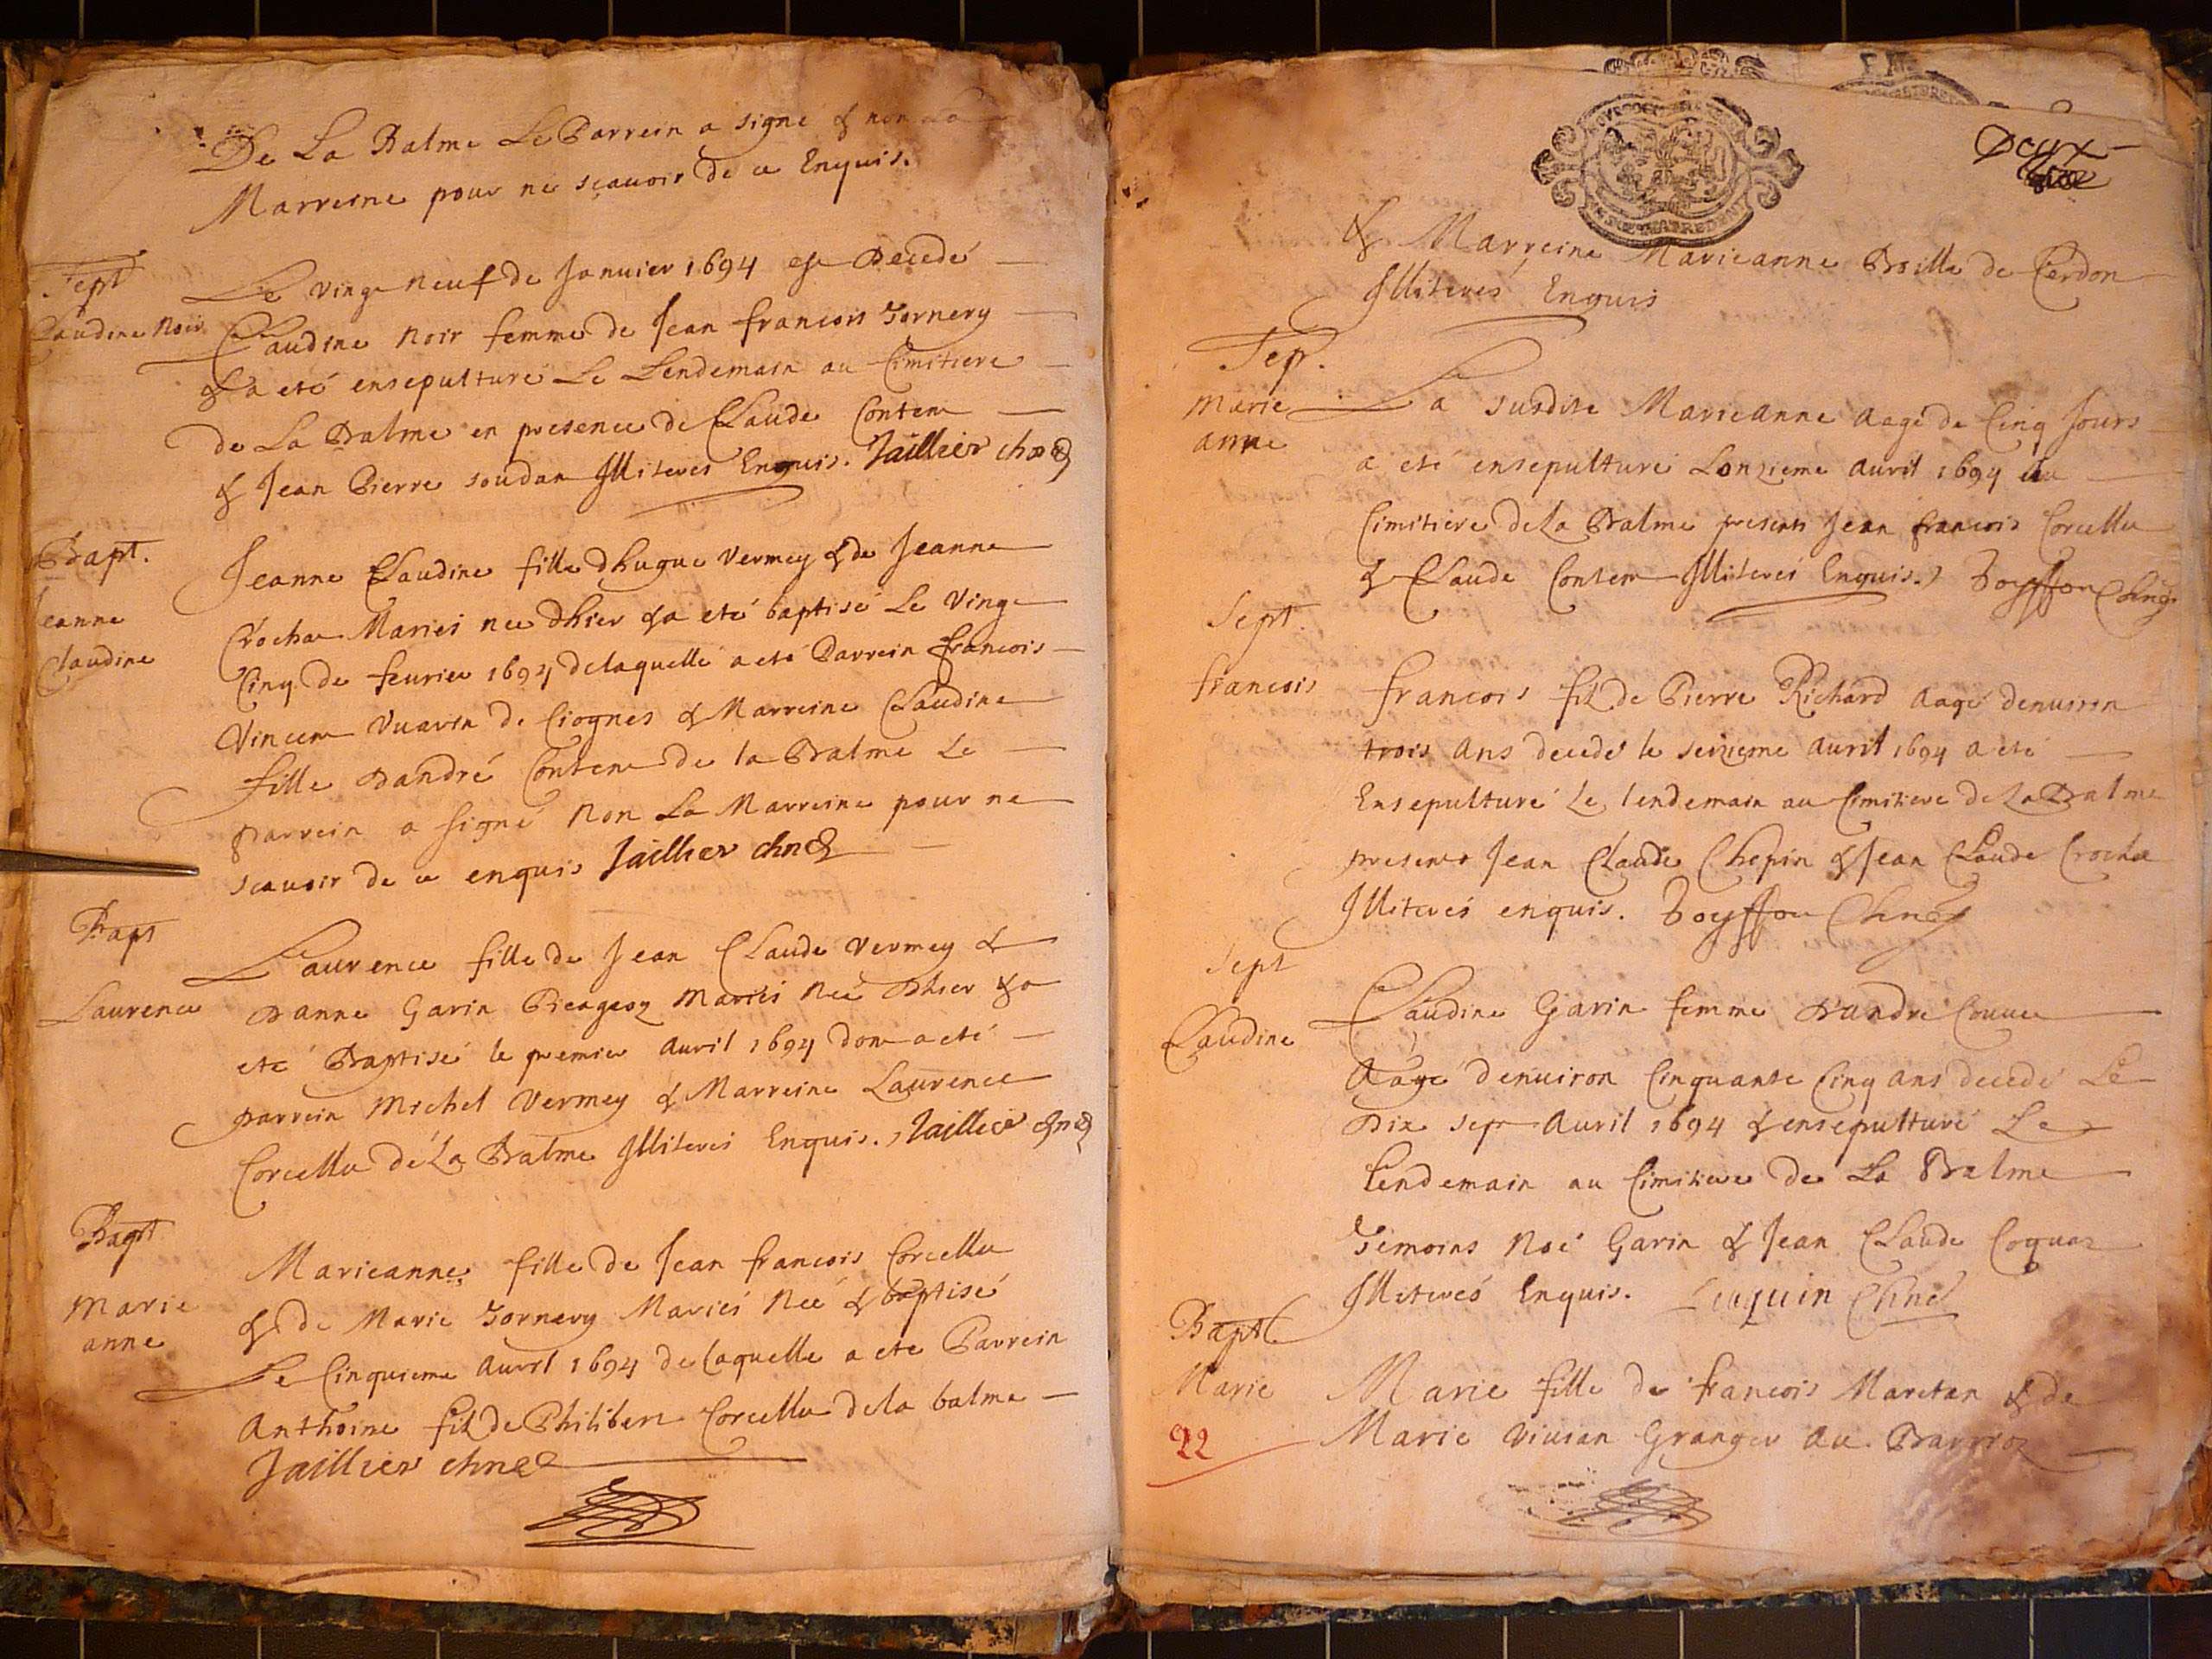 De La Balme Le Parrein a signé & non La
Marreine pour ne sçauoir de ce Enquis.
Sept
Claudine Noir
Le vingt neuf de Januier 1694 est Decedé
Claudine Noir femme de Jean francois Tornery
& a eté ensepulturé Le Lendemain au Cimitiere
de La Balme en presence de Claude Contem
& Jean Pierre soudan Illiterés Enquis. Jaillier
Bapt.
Jeanne
Claudine
Jeanne Claudine fille dhugue Vermey & de Jeanne
Crochat Mariés nee dhier & a eté baptisé Le Vingt
Cinq de feurier 1694 de laquelle a eté Parrein francois
Vincent Vuarin de Ciognes & Marreine Claudine
fille dandré Contem de la Balme Le
parrein a signé Non La Marreine pour ne
scauoir de ce enquis Jaillier chne
Bapt
Laurence
Laurence fille de Jean Claude Vermey &
Danne Garin Mariés Neé Dhier & a
eté Baptisé le premier Auril 1694 dont a eté
parrein Michel Vermey & Marreine Laurence
Corcellu de La Balme Illiterés Enquis. Jaillier chne
Bapt
Marie
anne
Marieanne fille de Jean francois Corcellu
& de Marie Tornery Mariés Neé & baptisé
Le Cinquieme Auril 1694 de laquelle a ete Parrein
Anthoine filz de Philibert Corcellu de la balme
Jaillier chne
Deux
& Marreine Marieanne Brille de Cerdon
Illiterés Enquis
Sep.
Marie
anne
La susdite Marieanne Aagé de Cinq Jours
a eté ensepulturé Lonzieme Auril 1694 au
Cimitiere de La Balme presents Jean francois Corcellu
& Claude Contem Illiterés Enquis. Boysson Chne
Sept.
francois
francois filz de Pierre Richard Aagé denuiron
trois Ans decedé le seizieme Auril 1694 a eté
Ensepulturé Le lendemain au Cimitiere de La Balme
presents Jean Claude Chepin & Jean Claude Crochat
Illiterés enquis. Boysson Chne
Sept
Claudine
Claudine Garin femme D'andré
Aagé denuiron Cinquante Cinq ans decedé Le
Dix sept Auril 1694 & ensepulturé Le
Lendemain au Cimitiere de La Balme
Temoins Noé Garin & Jean Claude Coquaz
Illiterés Enquis. Luquin Chne
Bapt
Marie
Marie fille de francois Maretan & de
Marie Viuian Granger au Barrioz
22